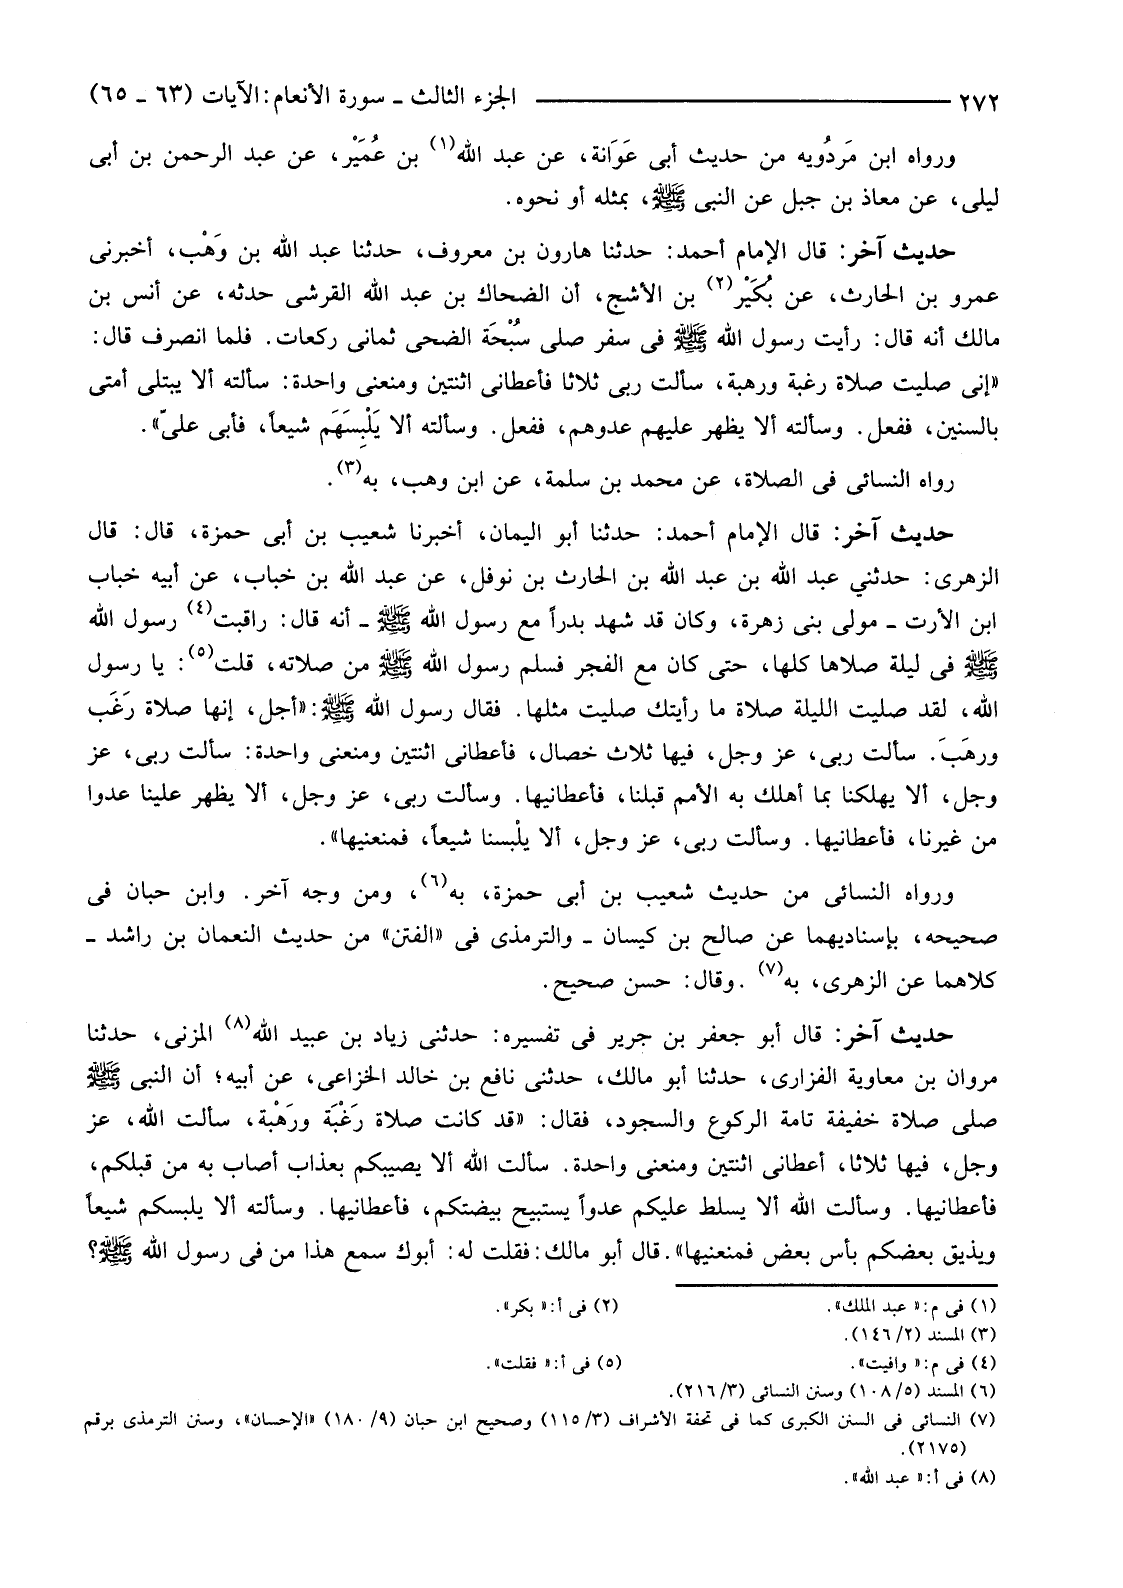 ٢٧٢ ــــــــــــــــ الجزء الثالث ـ سورة الأنعام: الآيات (٦٣ ـ ٦٥)
ورواه ابن مَردُويه من حديث أبى عَوَانة، عن عبد الله(١) بن عُمَيْر، عن عبد الرحمن بن أبى
ليلى، عن معاذ بن جبل عن النبى ﷺ، بمثله أو نحوه.
حديث آخر: قال الإمام أحمد: حدثنا هارون بن معروف، حدثنا عبد الله بن وَهْب، أخبرنى
عمرو بن الحارث، عن بُكَيْر(٢) بن الأشج، أن الضحاك بن عبد الله القرشى حدثه، عن أنس بن
مالك أنه قال: رأيت رسول الله ﷺ فى سفر صلى سُبْحَة الضحى ثمانى ركعات. فلما انصرف قال:
«إنى صليت صلاة رغبة ورهبة، سألت ربى ثلاثا فأعطانى اثنتين ومنعنى واحدة: سألته ألا يبتلى أمتى
بالسنين، ففعل. وسألته ألا يظهر عليهم عدوهم، ففعل. وسألته ألا يَلْبِسَهَم شيعاً، فأبى علىّ».
رواه النسائى فى الصلاة، عن محمد بن سلمة، عن ابن وهب، به(٣).
حديث آخر: قال الإمام أحمد: حدثنا أبو اليمان، أخبرنا شعيب بن أبى حمزة، قال: قال
الزهرى: حدثني عبد الله بن عبد الله بن الحارث بن نوفل، عن عبد الله بن خباب، عن أبيه خباب
ابن الأرت ـ مولى بنى زهرة، وكان قد شهد بدراً مع رسول الله ﷺ ـ أنه قال: راقبت(٤) رسول الله
ﷺ فى ليلة صلاها كلها، حتى كان مع الفجر فسلم رسول الله ﷺ من صلاته، قلت(٥): يا رسول
الله، لقد صليت الليلة صلاة ما رأيتك صليت مثلها. فقال رسول الله ﷺ:«أجل، إنها صلاة رَغَب
ورهَبَ. سألت ربى، عز وجل، فيها ثلاث خصال، فأعطانى اثنتين ومنعنى واحدة: سألت ربى، عز
وجل، ألا يهلكنا بما أهلك به الأمم قبلنا، فأعطانيها. وسألت ربى، عز وجل، ألا يظهر علينا عدوا
من غيرنا، فأعطانيها. وسألت ربى، عز وجل، ألا يلْبسنا شيعاً، فمنعنيها».
ورواه النسائى من حديث شعيب بن أبى حمزة، به(٦)، ومن وجه آخر. وابن حبان فى
صحيحه، بإسناديهما عن صالح بن كيسان ـ والترمذى فى «الفتن» من حديث النعمان بن راشد ـ
كلاهما عن الزهرى، به(٧) .وقال: حسن صحيح.
حديث آخر: قال أبو جعفر بن جرير فى تفسيره: حدثنى زياد بن عبيد الله(٨) المزنى، حدثنا
مروان بن معاوية الفزارى، حدثنا أبو مالك، حدثنى نافع بن خالد الخزاعى، عن أبيه؛ أن النبى ﷺ
صلى صلاة خفيفة تامة الركوع والسجود، فقال: «قد كانت صلاة رَغْبَة ورَهْبة، سألت الله، عز
وجل، فيها ثلاثا، أعطانى اثنتين ومنعنى واحدة. سألت الله ألا يصيبكم بعذاب أصاب به من قبلكم،
فأعطانيها. وسألت الله ألا يسلط عليكم عدواً يستبيح بيضتكم، فأعطانيها. وسألته ألا يلبسكم شيعاً
ويذيق بعضكم بأس بعض فمنعنيها».قال أبو مالك:فقلت له: أبوك سمع هذا من فى رسول الله ﷺ؟
(١) فى م:« عبد الملك». (٢) فى أ:« بكر».
(٣) المسند (٢/ ١٤٦).
(٤) فى م:« وافيت». (٥) فى أ:« فقلت».
(٦) المسند (٥/ ١٠٨) وسنن النسائى (٣/ ٢١٦).
(٧) النسائى فى السنن الكبرى كما فى تحفة الأشراف (٣/ ١١٥) وصحيح ابن حبان (٩/ ١٨٠) «الإحسان»، وسنن الترمذى برقم
(٢١٧٥).
(٨) فى أ:« عبد الله».